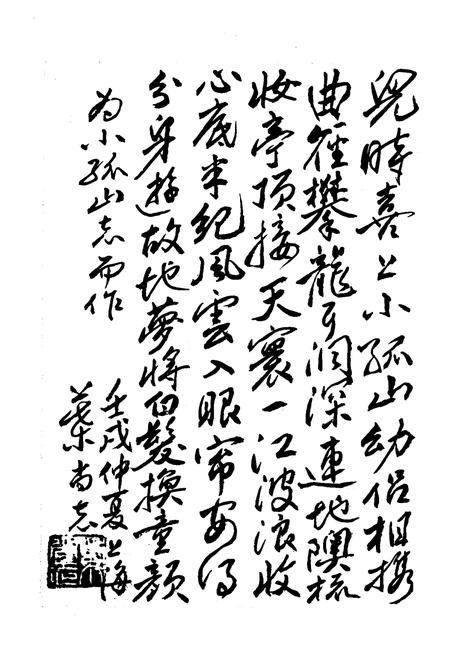 兒時喜上小孤山幼侣相携
曲徑攀龍耳洞深連地隩梳
妝亭頂接天寰一江波浪收
心底半紀風雲入眼帘安得
分身遊故地夢將白髮換童顏
为小孤山志而作
壬戌仲夏上海
葉尚志